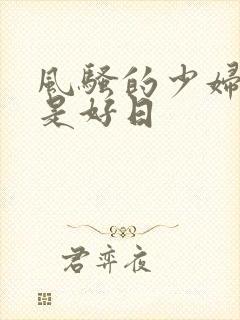 風騷的少婦
是好日
君弈夜